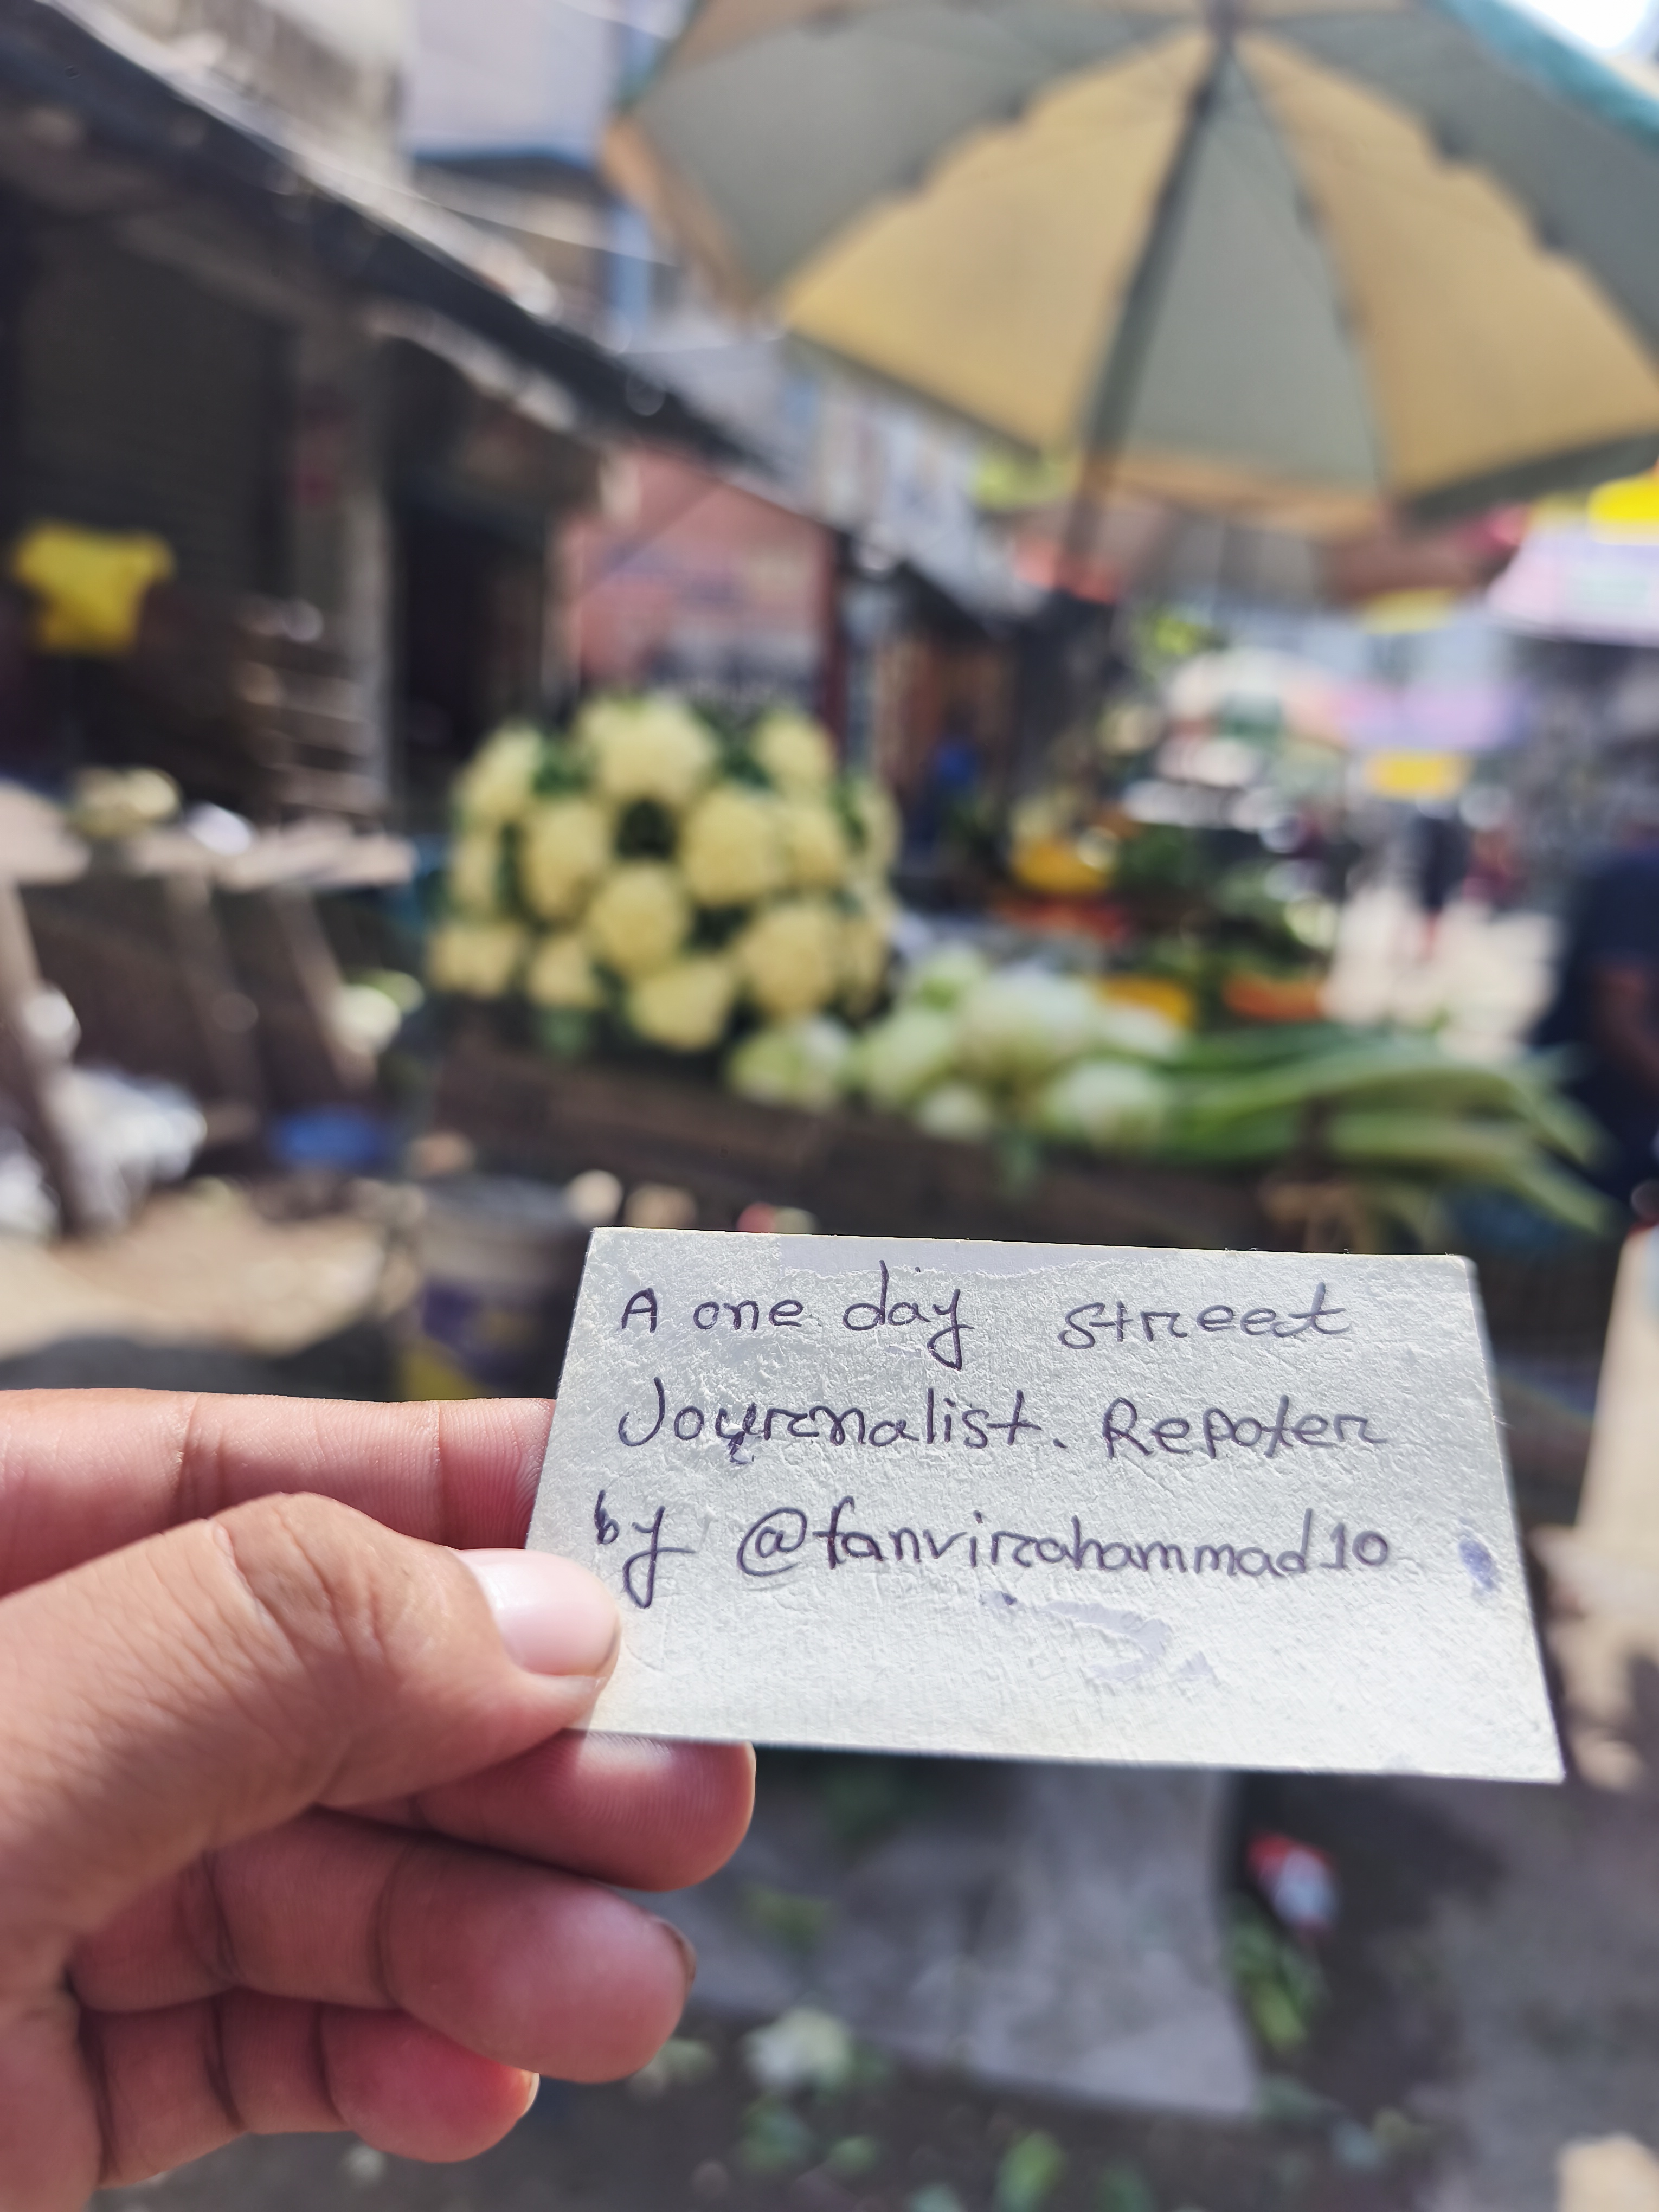 A one day street
Journalist. Repoter
by @tanvirahammad10